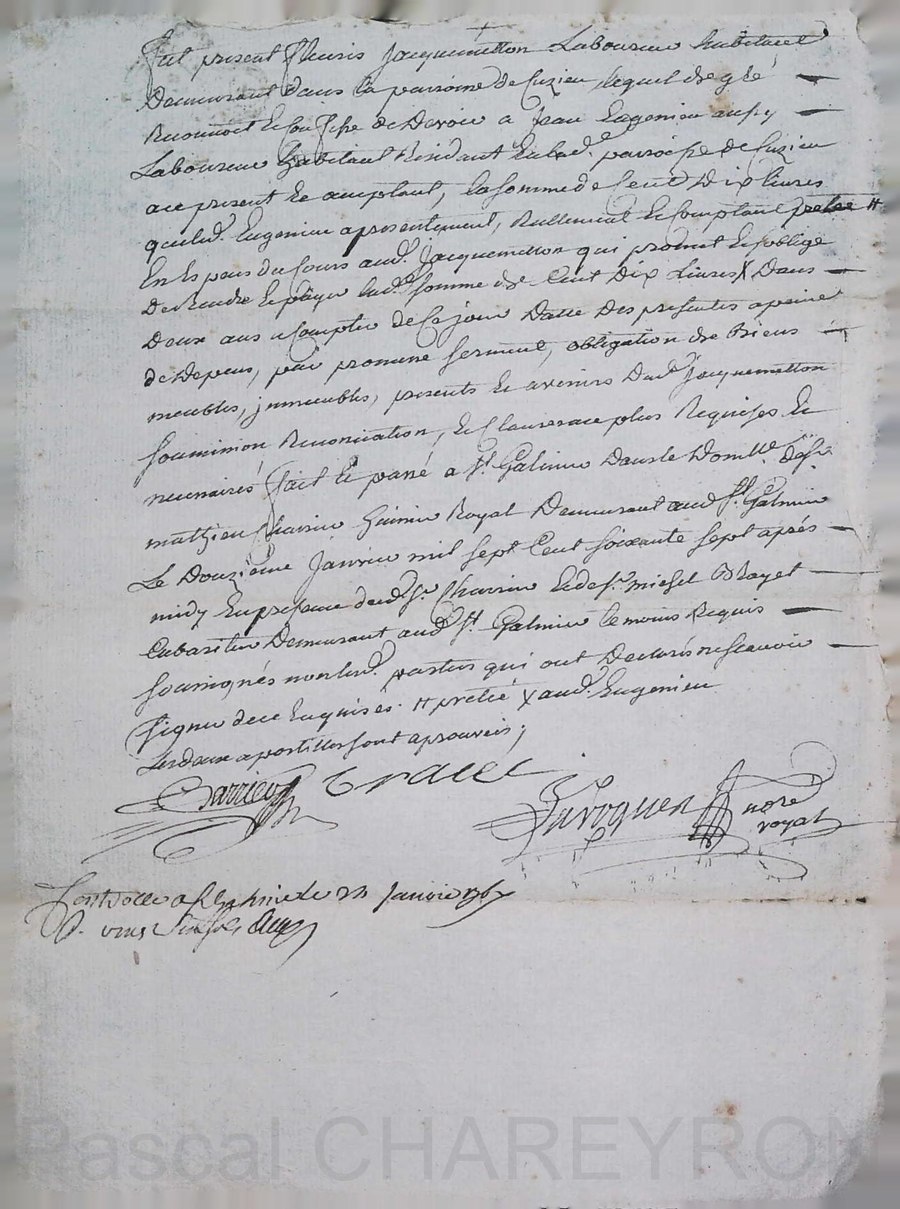 fut present fleuris Jacquemetton Laboureur habitant
Demeurant dans la parroisse de Cuzieu lequel de gré
Reconnoit et Confesse de Devoir a Jean Eugenieu aussy
Laboureur habitant Residant en lad. parroisse de Cuzieu
ace present et acceptant, la somme de Cent Dix livres
que led. Eugenieu a presentement, Reellement et Comptant
En Especes du Cours aud. Jacquemetton qui promet et soblige
De Rendre et payer lad. somme de Cent Dix Livres X Dans
Deux ans a Compter de Ce jour Datte Des presentes a peine
de Depens, par promesse serment, obligation de Biens
meubles, jmmeubles, presents et avenirs Dud. Jacquemetton
soumission Renonciation, et Clauses a ce plus Requises et
necessaires fait et passé a St. Galmier Dans le Domlle. de sr.
mathieu Charrin Huissier Royal Demeurant aud. St. Galmier
Le Douzieme Janvier mil sept Cent soixante sept aprés
midy En presence dud. Sr. Charrin et de sr. michel Brayet
Cabaretier Demeurant aud. St. Galmier temoins Requis
soussignés non lesd. parties qui ont Declarés ne scavoir
signer de ce Enquises. # pretée X aud. Eugenieu
Les deux apostilles sont aprouvées,
nore
royal
Controllé a St. Galmier le Janvier 1767